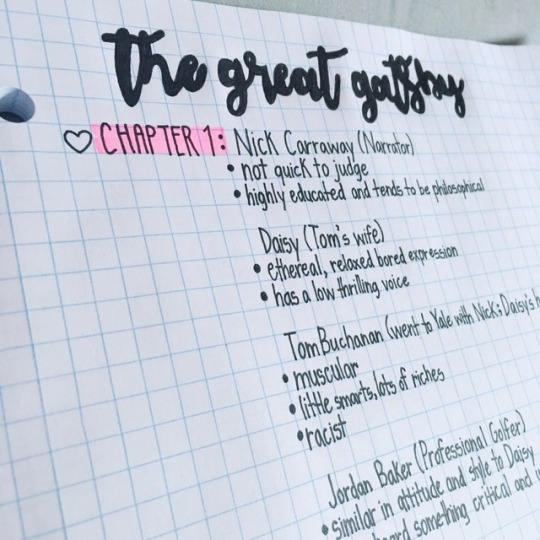 the great gatsby
CHAPTER 1: Nick Carraway (Narrator)
• not quick to judge
• highly educated and tends to be philosophical
Daisy (Tom's wife)
• ethereal, relaxed bored expression
• has a low thrilling voice
Tom Buchanan (went to Yale with Nick; Daisy's
• muscular
• little smarts, lots of riches
• racist
Jordan Baker (Professional Golfer)
• similar in attitude and style to Daisy
something critical and